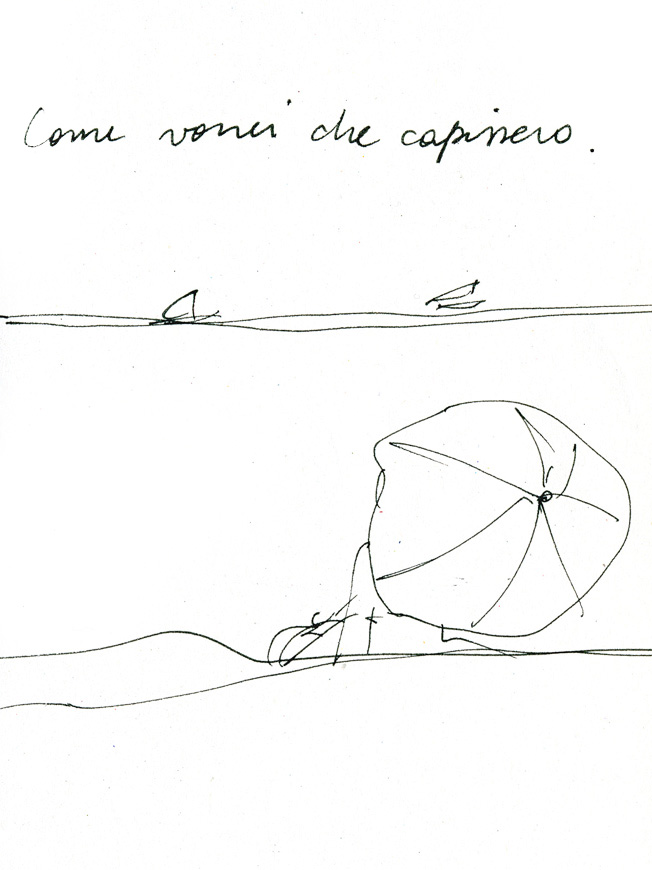 Come vorrei che capissero.